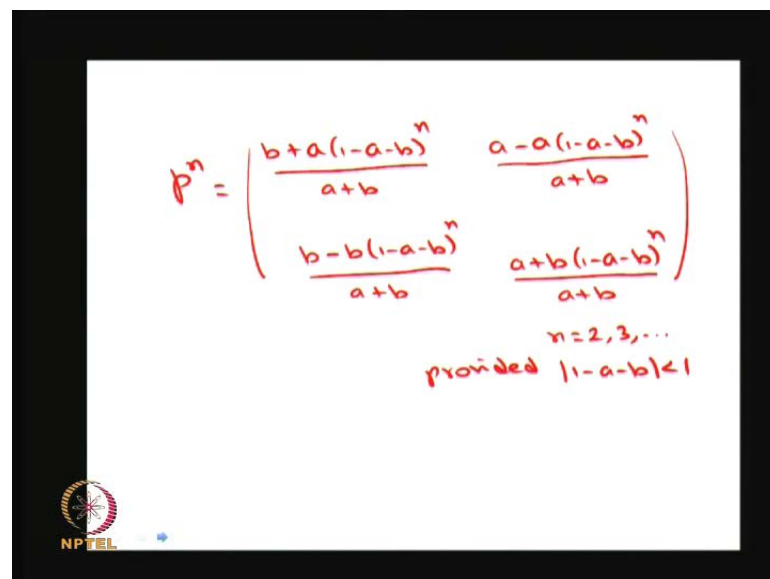 Pⁿ = ( (b+a(1-a-b)ⁿ)/(a+b)   (a-a(1-a-b)ⁿ)/(a+b)
(b-b(1-a-b)ⁿ)/(a+b)   (a+b(1-a-b)ⁿ)/(a+b) )
n=2,3,...
provided |1-a-b|<1
NPTEL